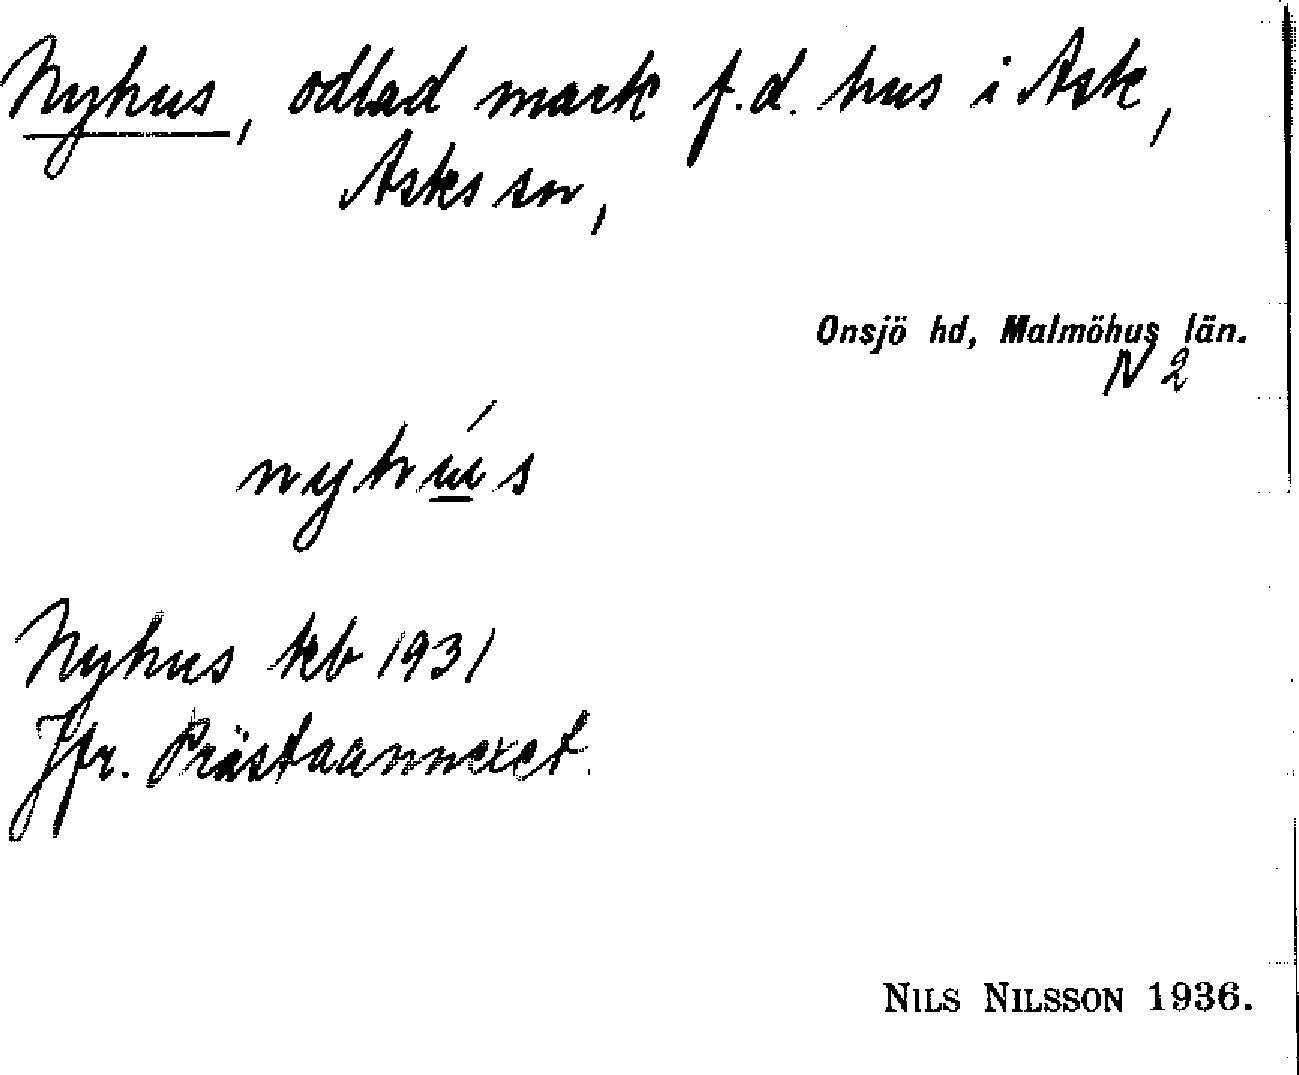 Nyhus, odlad mark f.d. hus i Ask,
Asks sn,
Onsjö hd, Malmöhus län.
N 2
nyhús
Nyhus kb 1931
Jfr. Prästaannexet.
NILS NILSSON 1936.